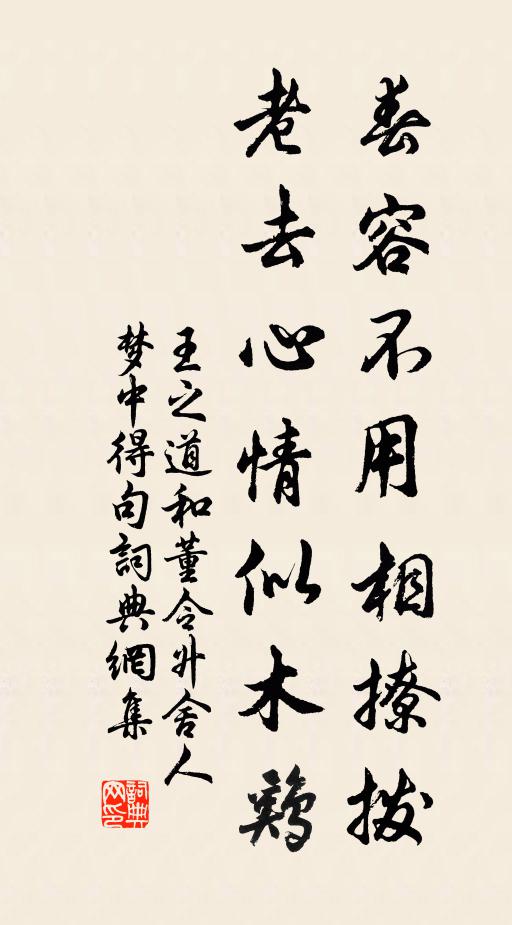 春容不用相撩拨
老去心情似木鷄
王之道和董令升舍人
梦中得句詞典網集
詞典网印